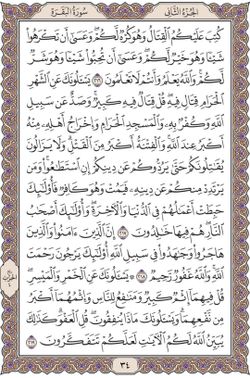 الجزء الثاني
سورة البقرة
كتب عليكم القتال وهو كره لكم وعسى أن تكرهوا
شيئا وهو خير لكم وعسى أن تحبوا شيئا وهو شر
لكم والله يعلم وأنتم لا تعلمون ٢١٦ يسألونك عن الشهر
الحرام قتال فيه قل قتال فيه كبير وصد عن سبيل
الله وكفر به والمسجد الحرام وإخراج أهله منه
أكبر عند الله والفتنة أكبر من القتل ولا يزالون
يقاتلونكم حتى يردوكم عن دينكم إن استطاعوا ومن
يرتدد منكم عن دينه فيمت وهو كافر فأولئك
حبطت أعمالهم في الدنيا والآخرة وأولئك أصحاب
النار هم فيها خالدون ٢١٧ إن الذين آمنوا والذين
هاجروا وجاهدوا في سبيل الله أولئك يرجون رحمت
الله والله غفور رحيم ٢١٨ يسألونك عن الخمر والميسر
قل فيهما إثم كبير ومنافع للناس وإثمهما أكبر
من نفعهما ويسألونك ماذا ينفقون قل العفو كذلك
يبين الله لكم الآيات لعلكم تتفكرون ٢١٩
٣٤